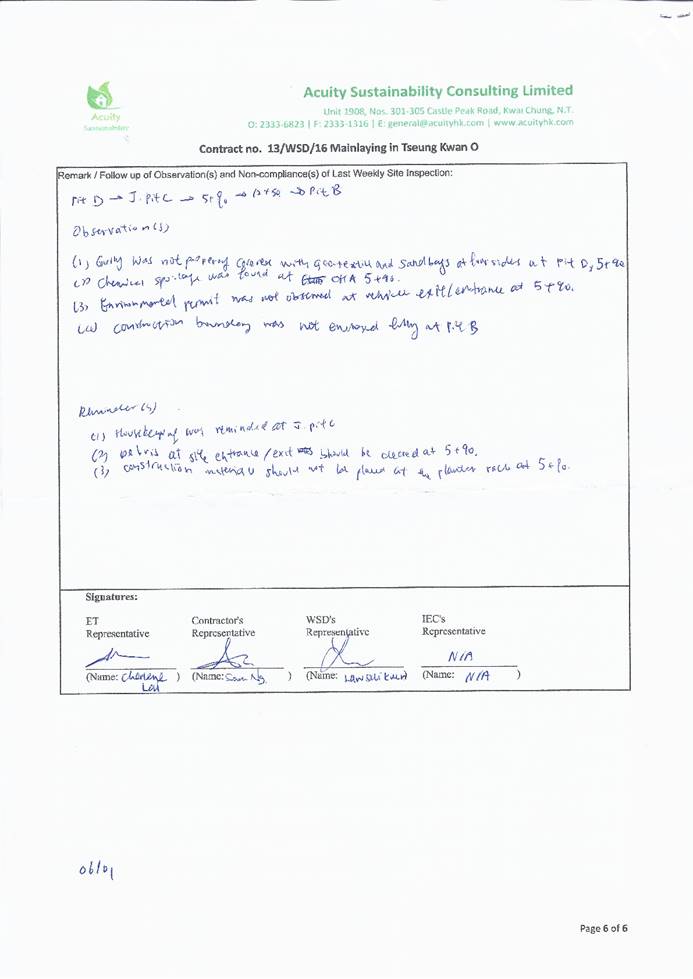 Acuity
Sustainability
Acuity Sustainability Consulting Limited
Unit 1908, Nos. 301-305 Castle Peak Road, Kwai Chung, N.T.
O: 2333-6823 | F: 2333-1316 | E: general@acuityhk.com | www.acuityhk.com
Contract no. 13/WSD/16 Mainlaying in Tseung Kwan O
Remark / Follow up of Observation(s) and Non-compliance(s) of Last Weekly Site Inspection:
Pit D → J. pit C → 5+90 → → Pit B
Observation(s)
(1) Gully was not properly covered with geo-textile and sandbags at four sides at Pit D, 5+90
(2) Chemical spoilage was found at CHA 5+90.
(3) Environmental permit was not observed at vehicle exit/entrance at 5+90.
(4) construction boundary was not enclosed fully at Pit B
Reminder(s)
(1) Housekeeping was reminded at J. pit C
(2) Debris at site entrance/exit should be cleared at 5+90.
(3) construction materials should not be placed at the at 5+90.
Signatures:
ET Representative
Contractor's Representative
WSD's Representative
IEC's Representative
N/A
(Name: Charlene Lau )
(Name: Sam Ng. )
(Name: )
(Name: N/A )
06/01
Page 6 of 6